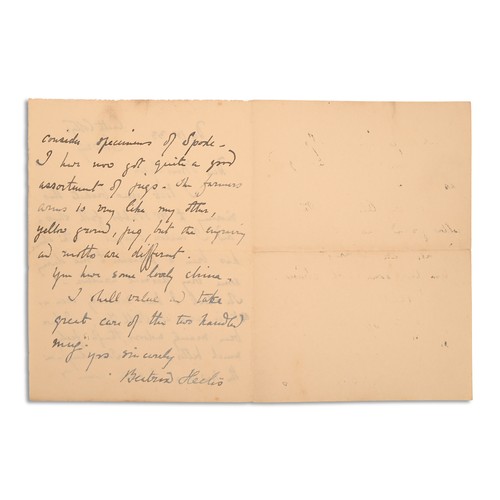 consider specimens of Spode -
I have now got quite a good
assortment of jugs. The farmers
arms is very like my other,
yellow ground, jug, but the engraving
and motto are different.
You have some lovely china -
I shall value and take
great care of the two handled
mug" yrs sincerely
Beatrix Heelis